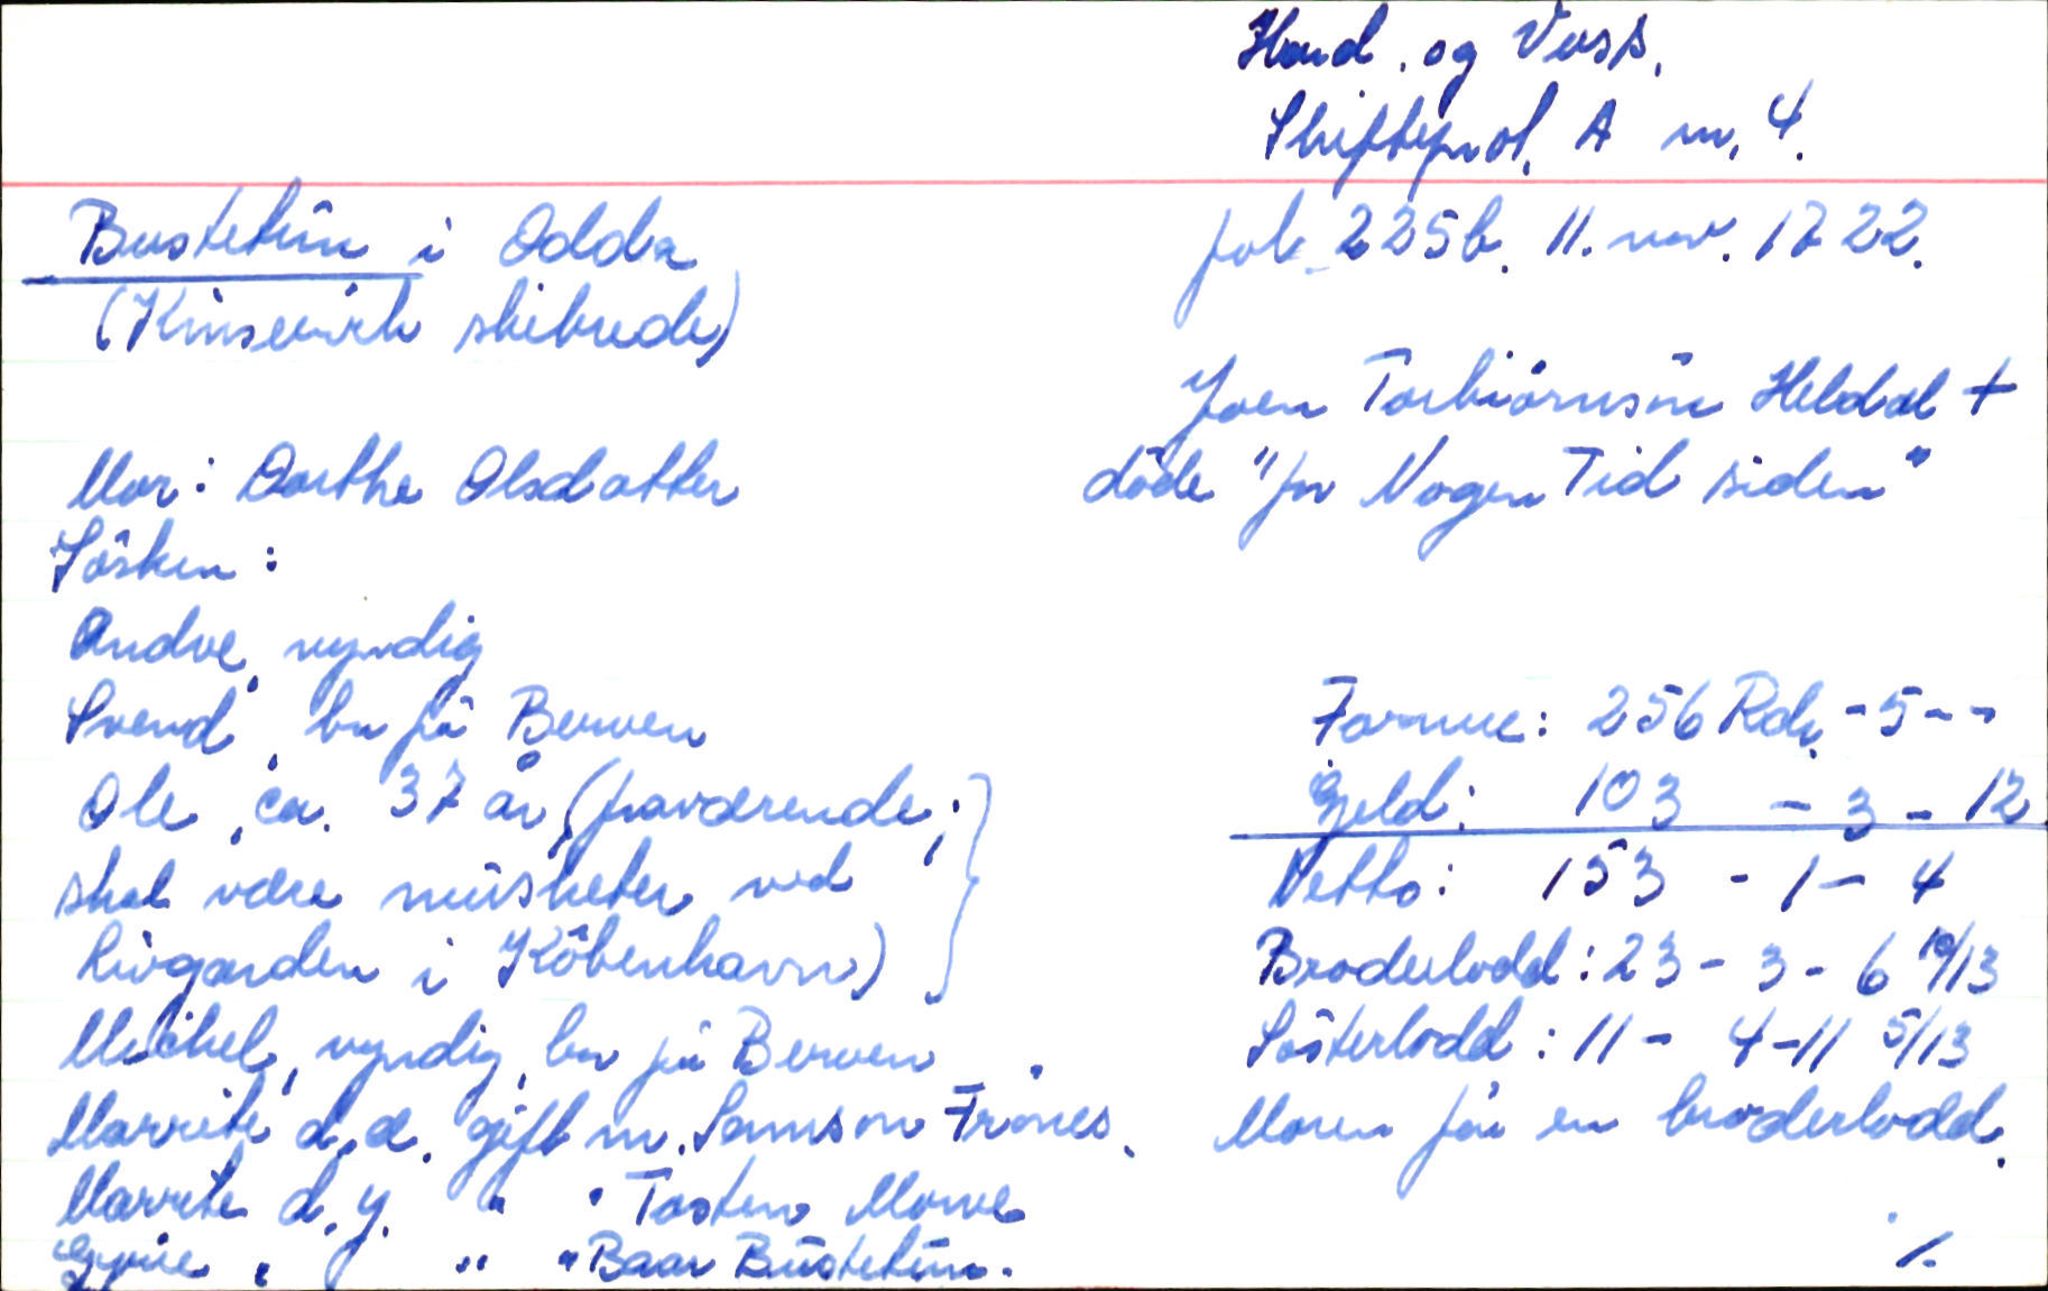 Hard. og Voss.
Skifteprot. A nr. 4.
fol. 225b. 11. nov. 1722.
Bustetün i Odda
(Kinservik skibrede)
Joen Torbiørnsøn Heldal +
døde "for Nogen Tid siden"
Mor: Dorthe Olsdatter
Søsken:
Andve, myndig
Svend, bor på Berven
Ole, ca. 37 år, (fraværende;
skal være müsketer ved
Livgarden i København)
Michel, myndig, bor på Berven
Marrite d.æ. gift m. Samson Frønes.
Marrite d.y. " " Tosten Mowe
Gyrie, " " Baar Büstetün.
Formue: 256 Rdr. - 5 - -
Gjeld: 103 - 3 - 12
Netto: 153 - 1 - 4
Broderlodd: 23 - 3 - 6 10/13
Søsterlodd: 11 - 4 - 11 5/13
Moren får en broderlodd.
/.